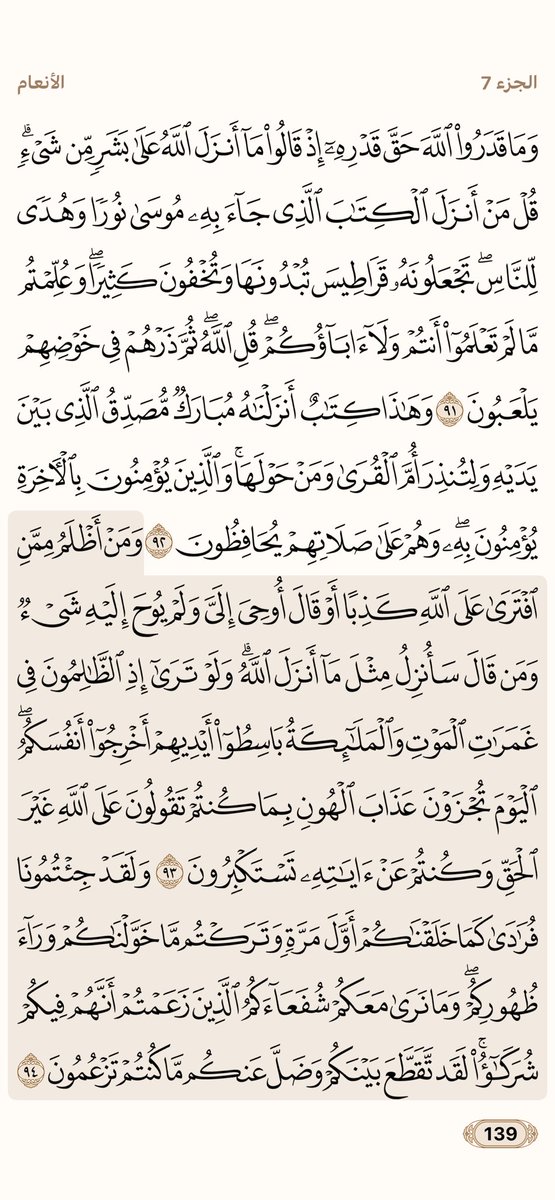 الجزء 7
الأنعام
وَمَا قَدَرُوا۟ ٱللَّهَ حَقَّ قَدْرِهِۦٓ إِذْ قَالُوا۟ مَآ أَنزَلَ ٱللَّهُ عَلَىٰ بَشَرٍ مِّن شَىْءٍ ۗ
قُلْ مَنْ أَنزَلَ ٱلْكِتَٰبَ ٱلَّذِى جَآءَ بِهِۦ مُوسَىٰ نُورًا وَهُدًى
لِّلنَّاسِ ۖ تَجْعَلُونَهُۥ قَرَاطِيسَ تُبْدُونَهَا وَتُخْفُونَ كَثِيرًا ۖ وَعُلِّمْتُم
مَّا لَمْ تَعْلَمُوٓا۟ أَنتُمْ وَلَآ ءَابَآؤُكُمْ ۖ قُلِ ٱللَّهُ ۖ ثُمَّ ذَرْهُمْ فِى خَوْضِهِمْ
يَلْعَبُونَ ٩١ وَهَٰذَا كِتَٰبٌ أَنزَلْنَٰهُ مُبَارَكٌ مُّصَدِّقُ ٱلَّذِى بَيْنَ
يَدَيْهِ وَلِتُنذِرَ أُمَّ ٱلْقُرَىٰ وَمَنْ حَوْلَهَا ۚ وَٱلَّذِينَ يُؤْمِنُونَ بِٱلْءَاخِرَةِ
يُؤْمِنُونَ بِهِۦ ۖ وَهُمْ عَلَىٰ صَلَاتِهِمْ يُحَافِظُونَ ٩٢ وَمَنْ أَظْلَمُ مِمَّنِ
ٱفْتَرَىٰ عَلَى ٱللَّهِ كَذِبًا أَوْ قَالَ أُوحِىَ إِلَىَّ وَلَمْ يُوحَ إِلَيْهِ شَىْءٌ
وَمَن قَالَ سَأُنزِلُ مِثْلَ مَآ أَنزَلَ ٱللَّهُ ۗ وَلَوْ تَرَىٰٓ إِذِ ٱلظَّٰلِمُونَ فِى
غَمَرَٰتِ ٱلْمَوْتِ وَٱلْمَلَٰٓئِكَةُ بَاسِطُوٓا۟ أَيْدِيهِمْ أَخْرِجُوٓا۟ أَنفُسَكُمُ ۖ
ٱلْيَوْمَ تُجْزَوْنَ عَذَابَ ٱلْهُونِ بِمَا كُنتُمْ تَقُولُونَ عَلَى ٱللَّهِ غَيْرَ
ٱلْحَقِّ وَكُنتُمْ عَنْ ءَايَٰتِهِۦ تَسْتَكْبِرُونَ ٩٣ وَلَقَدْ جِئْتُمُونَا
فُرَٰدَىٰ كَمَا خَلَقْنَٰكُمْ أَوَّلَ مَرَّةٍ وَتَرَكْتُم مَّا خَوَّلْنَٰكُمْ وَرَآءَ
ظُهُورِكُمْ ۖ وَمَا نَرَىٰ مَعَكُمْ شُفَعَآءَكُمُ ٱلَّذِينَ زَعَمْتُمْ أَنَّهُمْ فِيكُمْ
شُرَكَٰٓؤُا۟ ۚ لَقَد تَّقَطَّعَ بَيْنَكُمْ وَضَلَّ عَنكُم مَّا كُنتُمْ تَزْعُمُونَ ٩٤
139